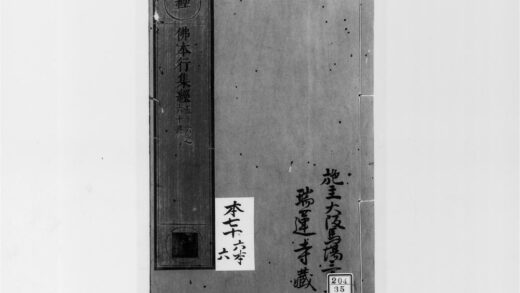 經
佛本行集經
本七十六
六本
施主大阪馬場
瑞蓮寺藏
204
35